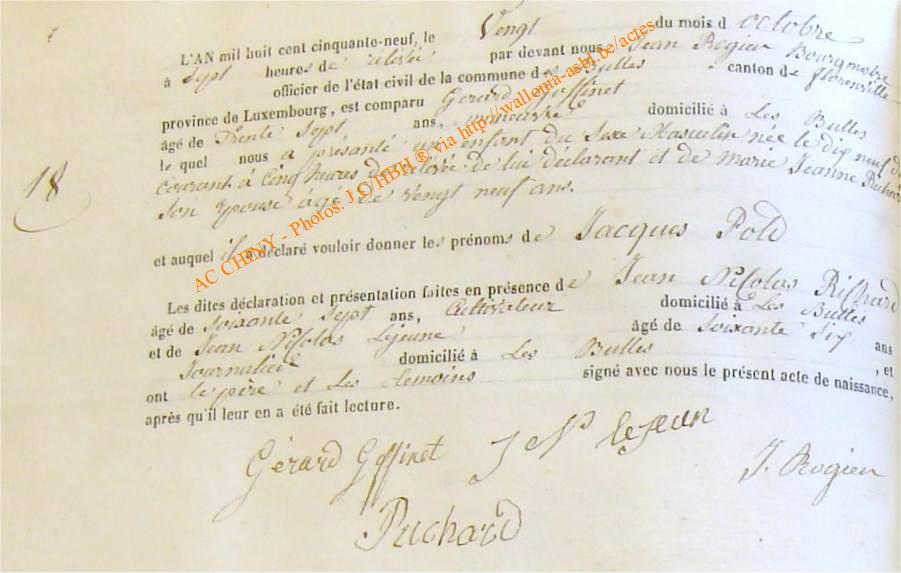 L'AN mil huit cent cinquante-neuf, le Vengt du mois d octobre
à Sept heures de relevée par devant nous Jean Rogier Bourgmestre
officier de l'état civil de la commune des Bulles canton de florenville
province de Luxembourg, est comparu Gerard Goffinet
âgé de Trente Sept ans, manoeuvre domicilié à Les Bulles
le quel nous a présanté un enfant du Sexe Masculin née le dix neuf du
18
Courant à Cinq heures de relevée de lui déclarant et de marie Jeanne
Son épouse âgé de vengt neuf ans.
et auquel il a déclaré vouloir donner les prénoms de Jacques
Les dites déclaration et présentation faites en présence de Jean Nicolas Richard
âgé de Soixante Sept ans, Cultivateur domicilié à Les Bulles
et de Jean Nicolas Lejeune âgé de Soixante Six ans
Journalier domicilié à Les Bulles , et
ont le père et Les temoins signé avec nous le présent acte de naissance,
après qu'il leur en a été fait lecture.
Gérard Goffinet J N leJeun
J. Rogier
AC CHENY - Photos: J C/HBH ® via http://wallonia-asbl.be/actes